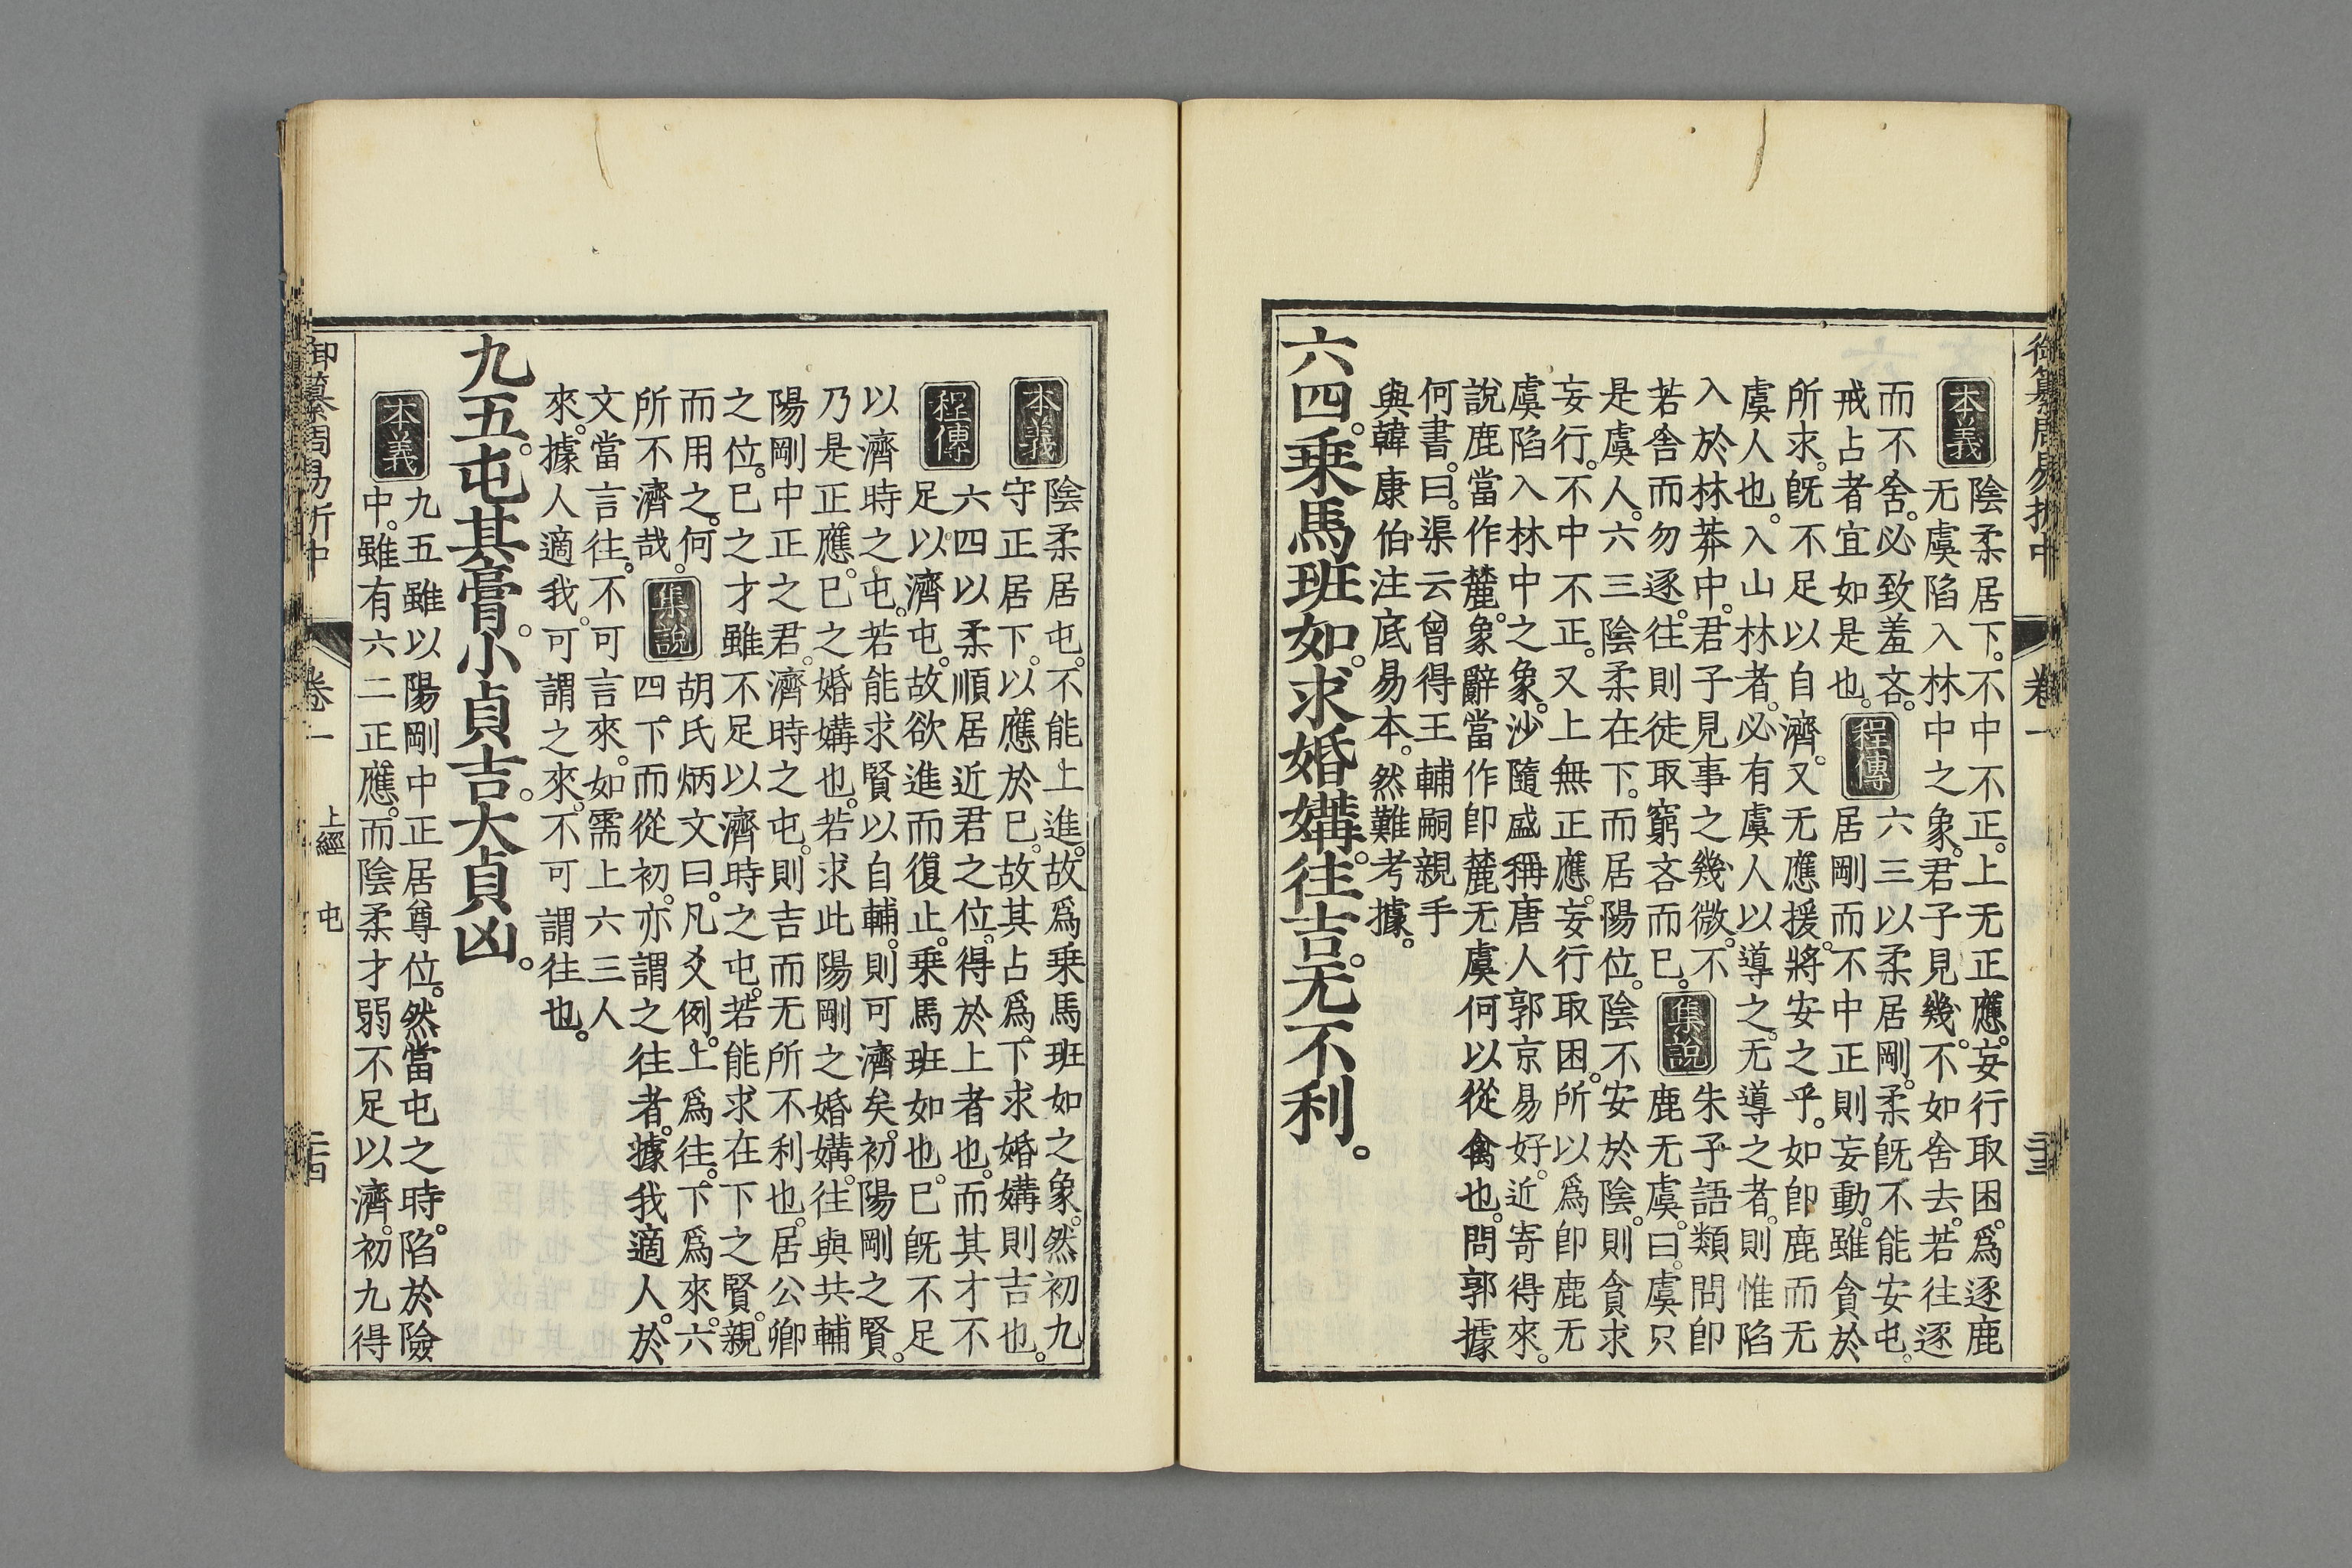 御纂周易折中 卷一 二十三
本義 陰柔居下。不中不正。上无正應。妄行取困。爲逐鹿
无虞陷入林中之象。君子見幾。不如舍去。若往逐
而不舍。必致羞吝。 六三以柔居剛。柔旣不能安屯。
戒占者宜如是也。 程傳 居剛而不中正則妄動。雖貪於
所求。旣不足以自濟。又无應援。將安之乎。如卽鹿而无
虞人也。入山林者。必有虞人以導之。无導之者。則惟陷
入於林莽中。君子見事之幾微。不 朱子語類問卽
若舍而勿逐。往則徒取窮吝而已。 集說 鹿无虞。曰。虞只
是虞人。六三陰柔在下。而居陽位。陰不安於陰。則貪求
妄行。不中不正。又上無正應。妄行取困。所以爲卽鹿无
虞陷入林中之象。沙隨盛稱唐人郭京易好。近寄得來。
說鹿當作麓。象辭當作卽麓无虞何以從禽也。問郭據
何書。曰。渠云曾得王輔嗣親手
與韓康伯注底易本。然難考據。
六四。乗馬班如。求婚媾。往吉。无不利。
本義 陰柔居屯。不能上進。故爲乗馬班如之象。然初九
守正居下。以應於已。故其占爲。下求婚媾則吉也。
程傳 六四以柔順居近君之位。得於上者也。而其才不
足以濟屯。故欲進而復止。乗馬班如也。已旣不足
以濟時之屯。若能求賢以自輔。則可濟矣。初陽剛之賢。
乃是正應。已之婚媾也。若求此陽剛之婚媾。往與共輔
陽剛中正之君。濟時之屯。則吉而无所不利也。居公卿
之位。已之才雖不足以濟時之屯。若能求在下之賢。親
而用之。何 胡氏炳文曰。凡爻例。上爲往。下爲來。六
所不濟哉。 集說 四下而從初。亦謂之往者。據我適人。於
文當言往。不可言來。如需上六三人
來。據人適我。可謂之來。不可謂往也。
九五。屯其膏。小貞吉。大貞凶。
本義 九五雖以陽剛中正居尊位。然當屯之時。陷於險
中。雖有六二正應。而陰柔才弱不足以濟。初九得
御纂周易折中 卷一 上經 屯 二十四